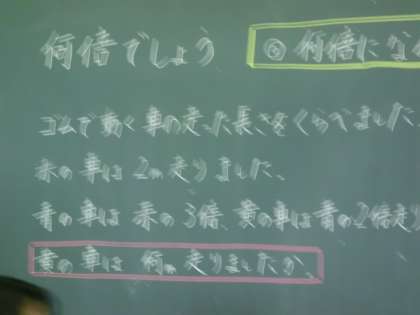 何倍でしょう
め 何倍にな
ゴムで動く車の走った長さをくらべました
赤の車は2m走りました。
青の車は赤の3倍、黄の車は青の2倍走り
黄の車は何m走りましたか。